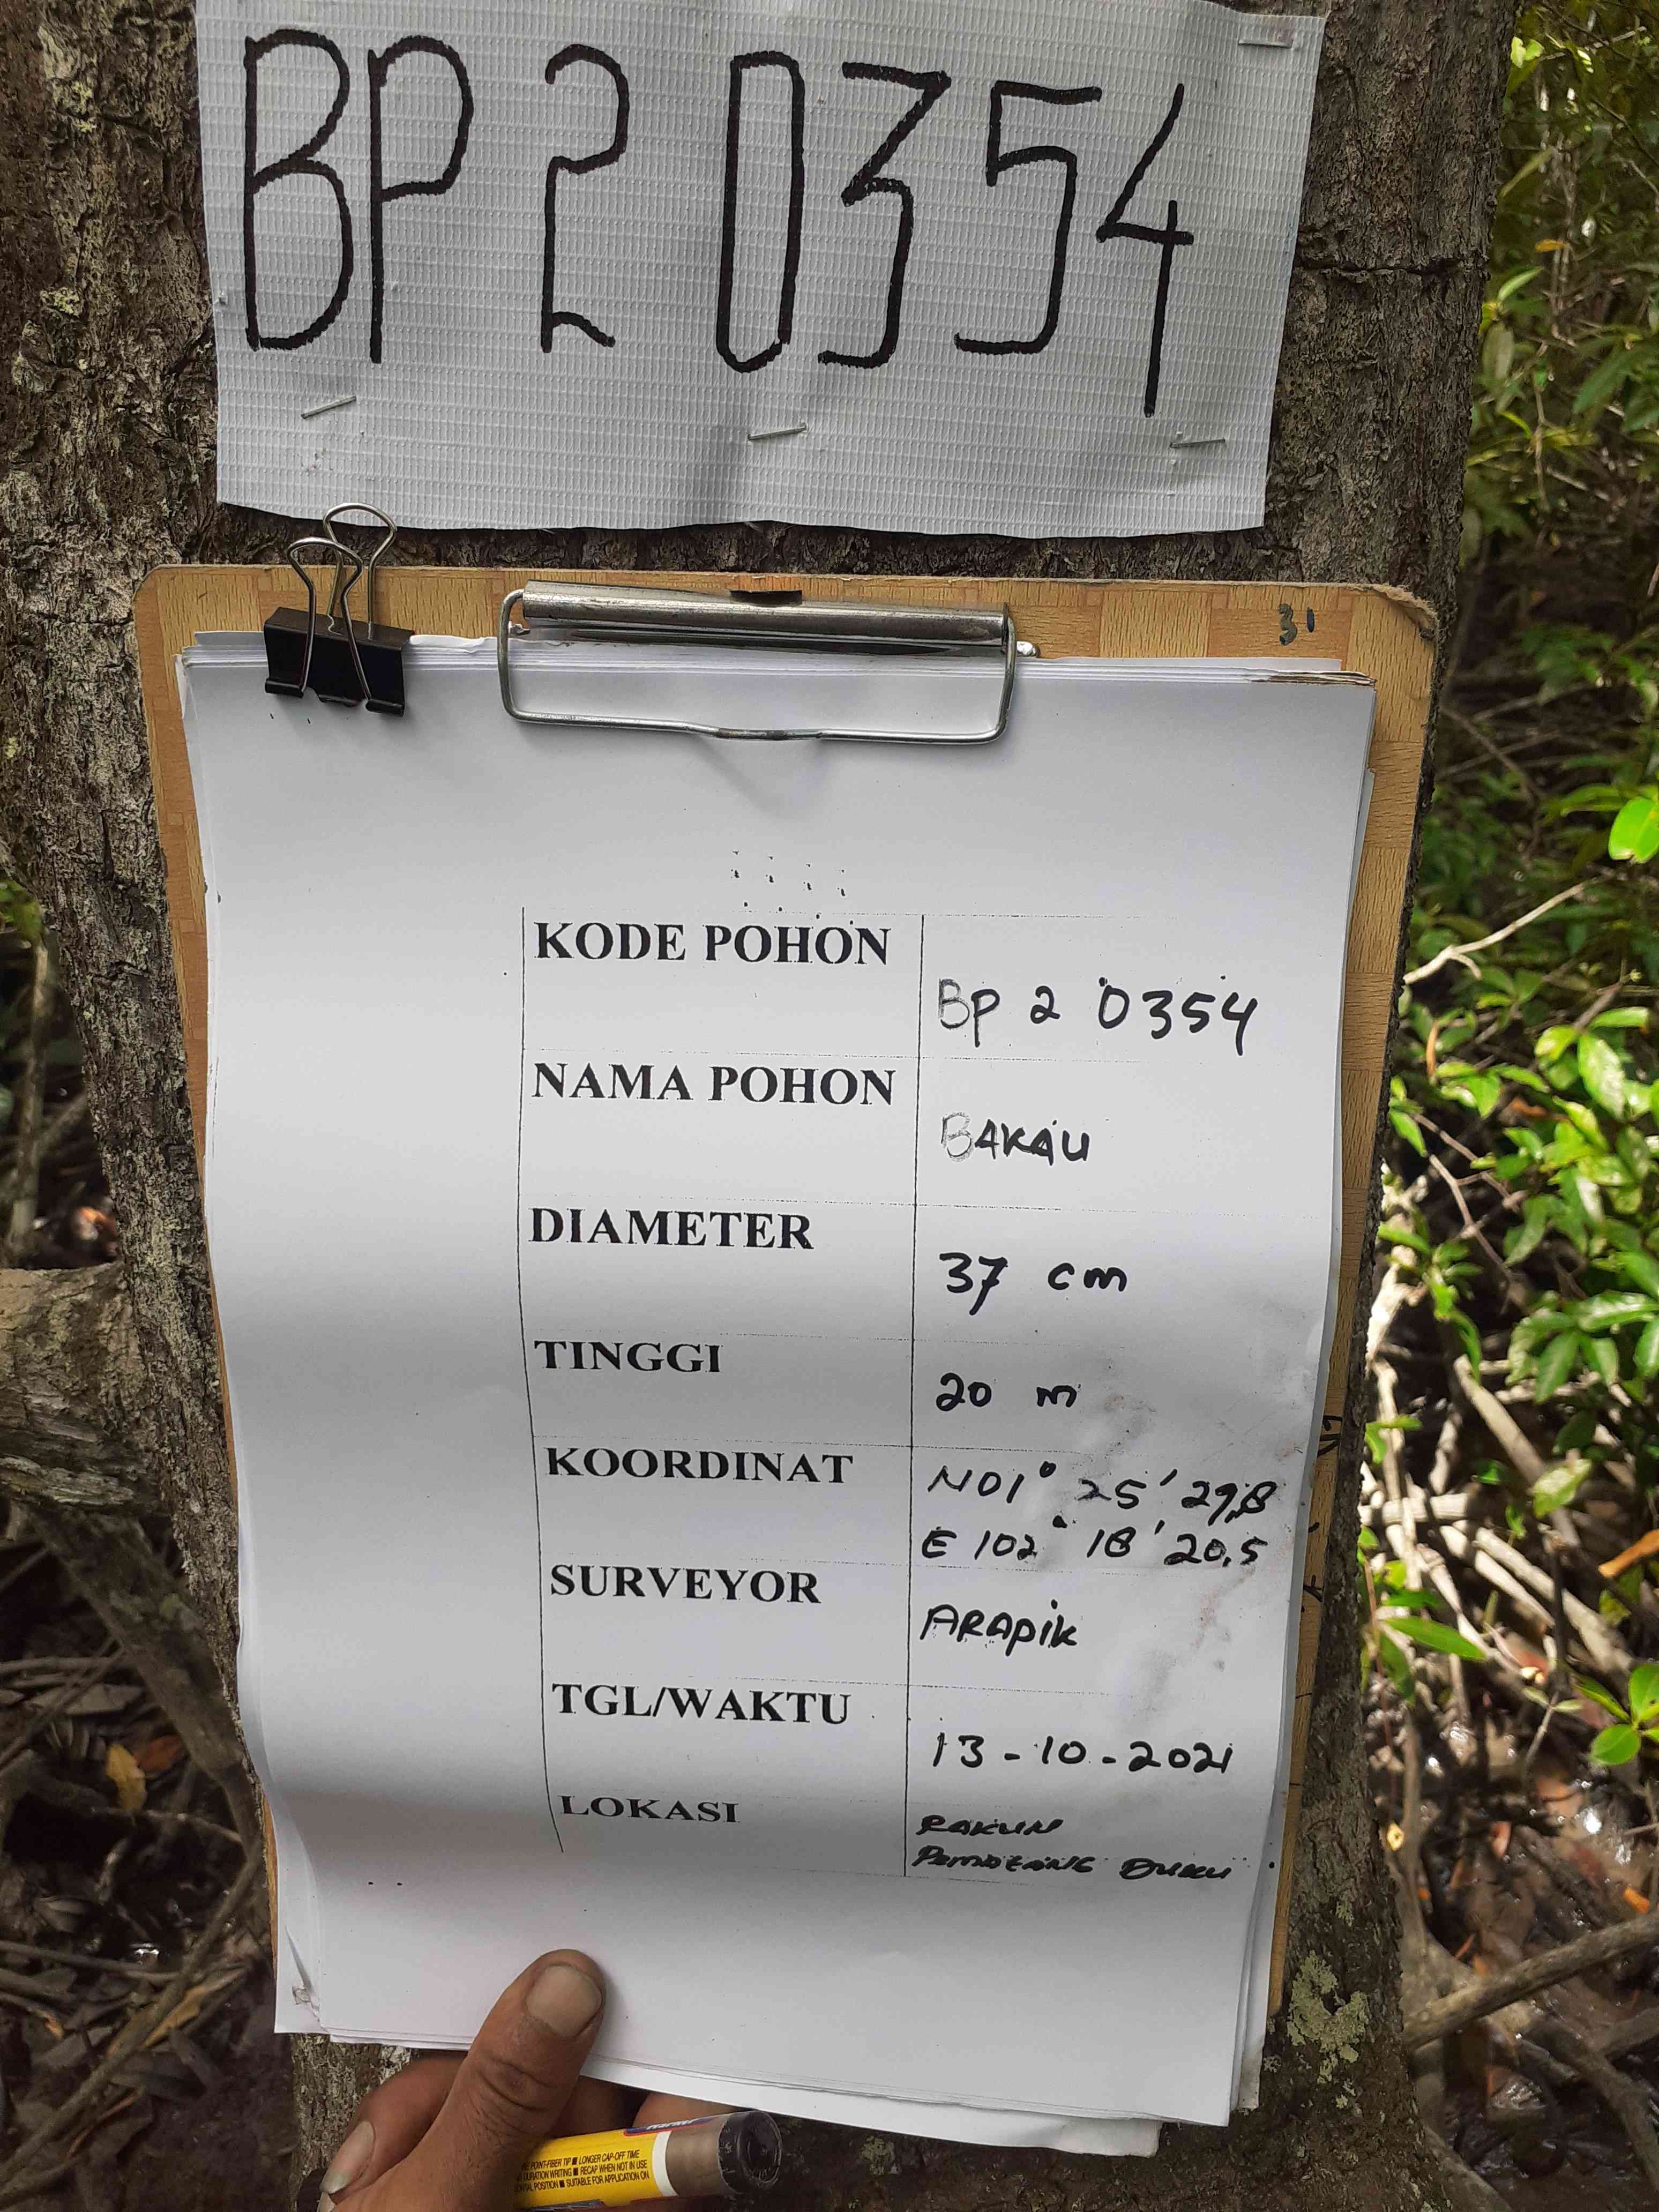 BP 2 0354
31
KODE POHON BP 2 0354
NAMA POHON BAKAU
DIAMETER 37 cm
TINGGI 20 m
KOORDINAT N01° 25' 29,8
E 102° 18' 20,5
SURVEYOR ARAPIK
TGL/WAKTU 13-10-2021
LOKASI RAKUN
DUKU
POINT-FIBER TIP ■ LONGER CAP-OFF TIME
DURATION WRITING ■ RECAP WHEN NOT IN USE
POSITION ■ SUITABLE FOR APPLICATION ON